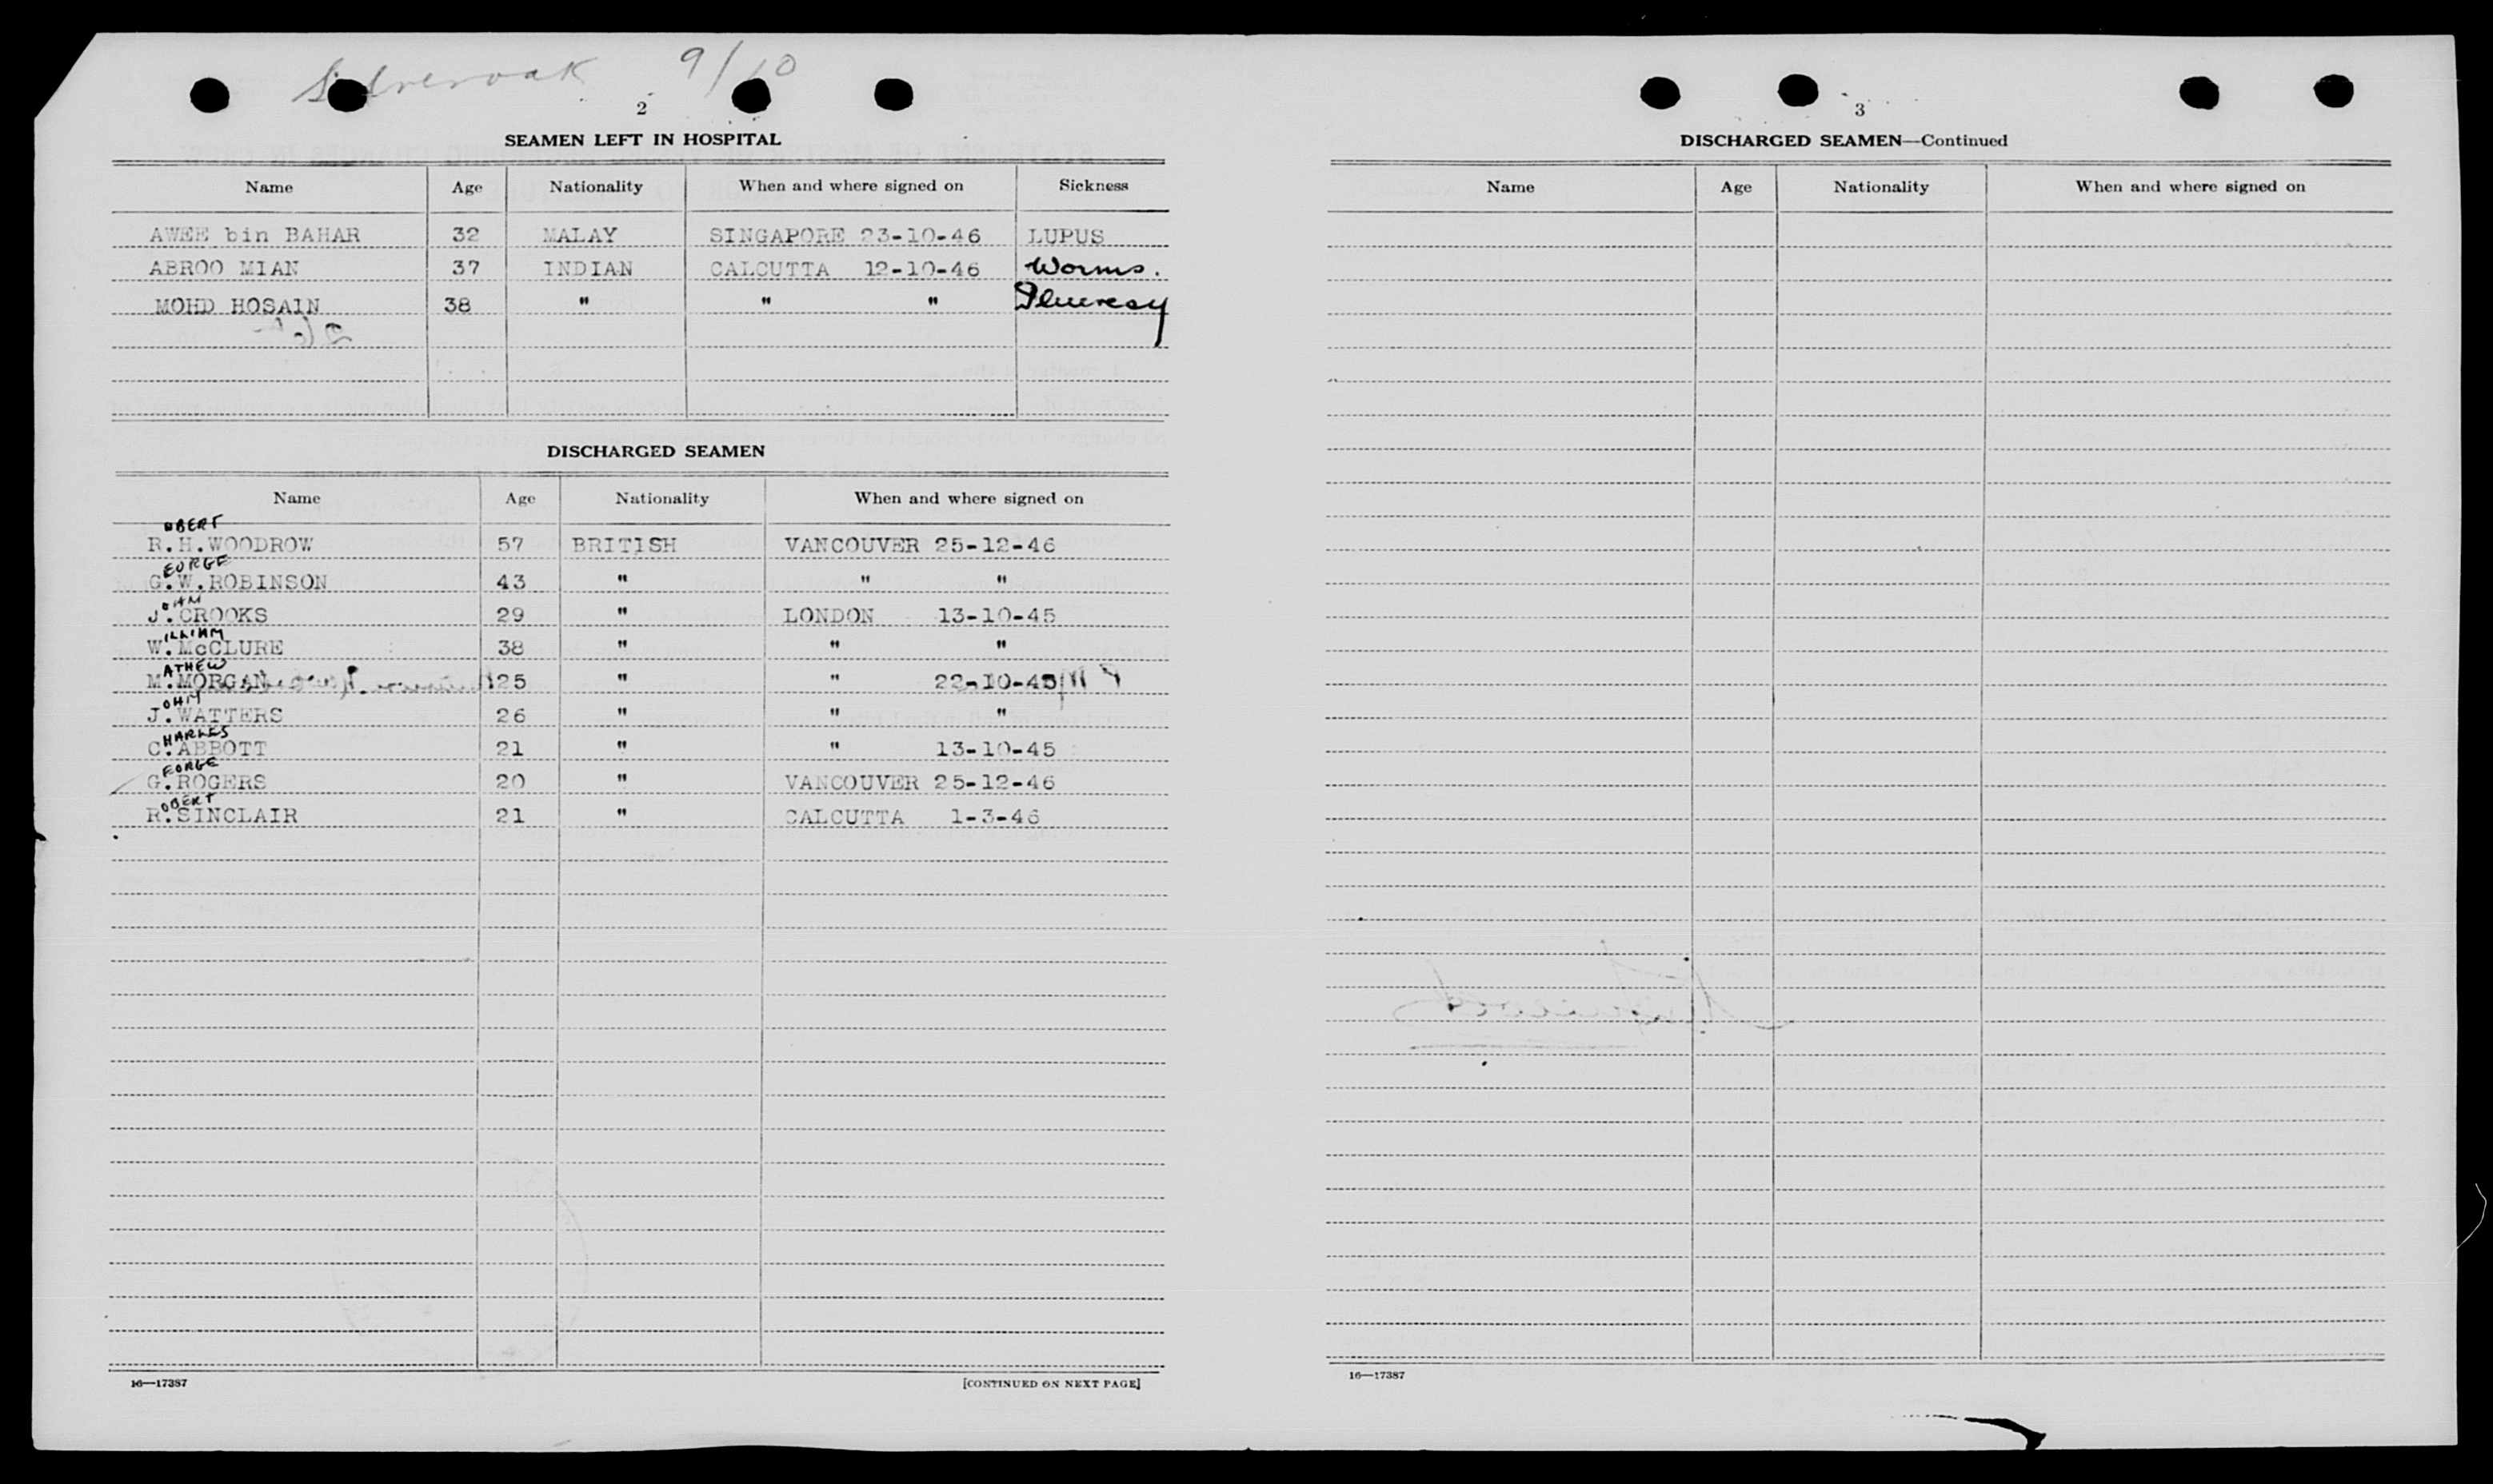 Silveroak 9/10
2
SEAMEN LEFT IN HOSPITAL
Name Age Nationality When and where signed on Sickness
AWEE bin BAHAR 32 MALAY SINGAPORE 23-10-46 LUPUS
ABROO MIAN 37 INDIAN CALCUTTA 12-10-46 Worms.
MOHD HOSAIN 38 " " " Pleuresy
DISCHARGED SEAMEN
Name Age Nationality When and where signed on
OBERT
R.H.WOODROW 57 BRITISH VANCOUVER 25-12-46
EORGE
G.W.ROBINSON 43 " " "
OHN
J.CROOKS 29 " LONDON 13-10-45
ILLIAM
W.McCLURE 38 " " "
ATHEW
M.MORGAN 25 " " 22-10-45
OHN
J.WATTERS 26 " " "
HARLES
C.ABBOTT 21 " " 13-10-45
EORGE
G.ROGERS 20 " VANCOUVER 25-12-46
OBERT
R.SINCLAIR 21 " CALCUTTA 1-3-46
16—17387 [CONTINUED ON NEXT PAGE]
3
DISCHARGED SEAMEN—Continued
Name Age Nationality When and where signed on
16—17387